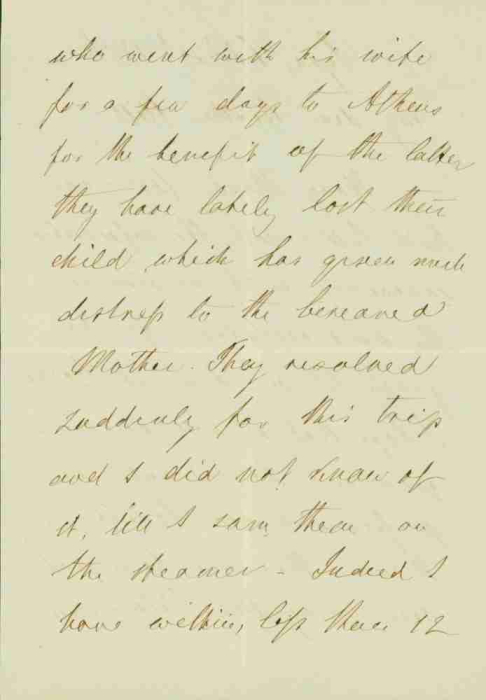 who went with his wife
for a few days to Athens
for the benefit of the latter
they have lately lost their
child which has given much
distress to the bereaved
Mother. They resolved
suddenly for this trip
and I did not know of
it, till I saw them on
the steamer - Indeed I
have within less than 12